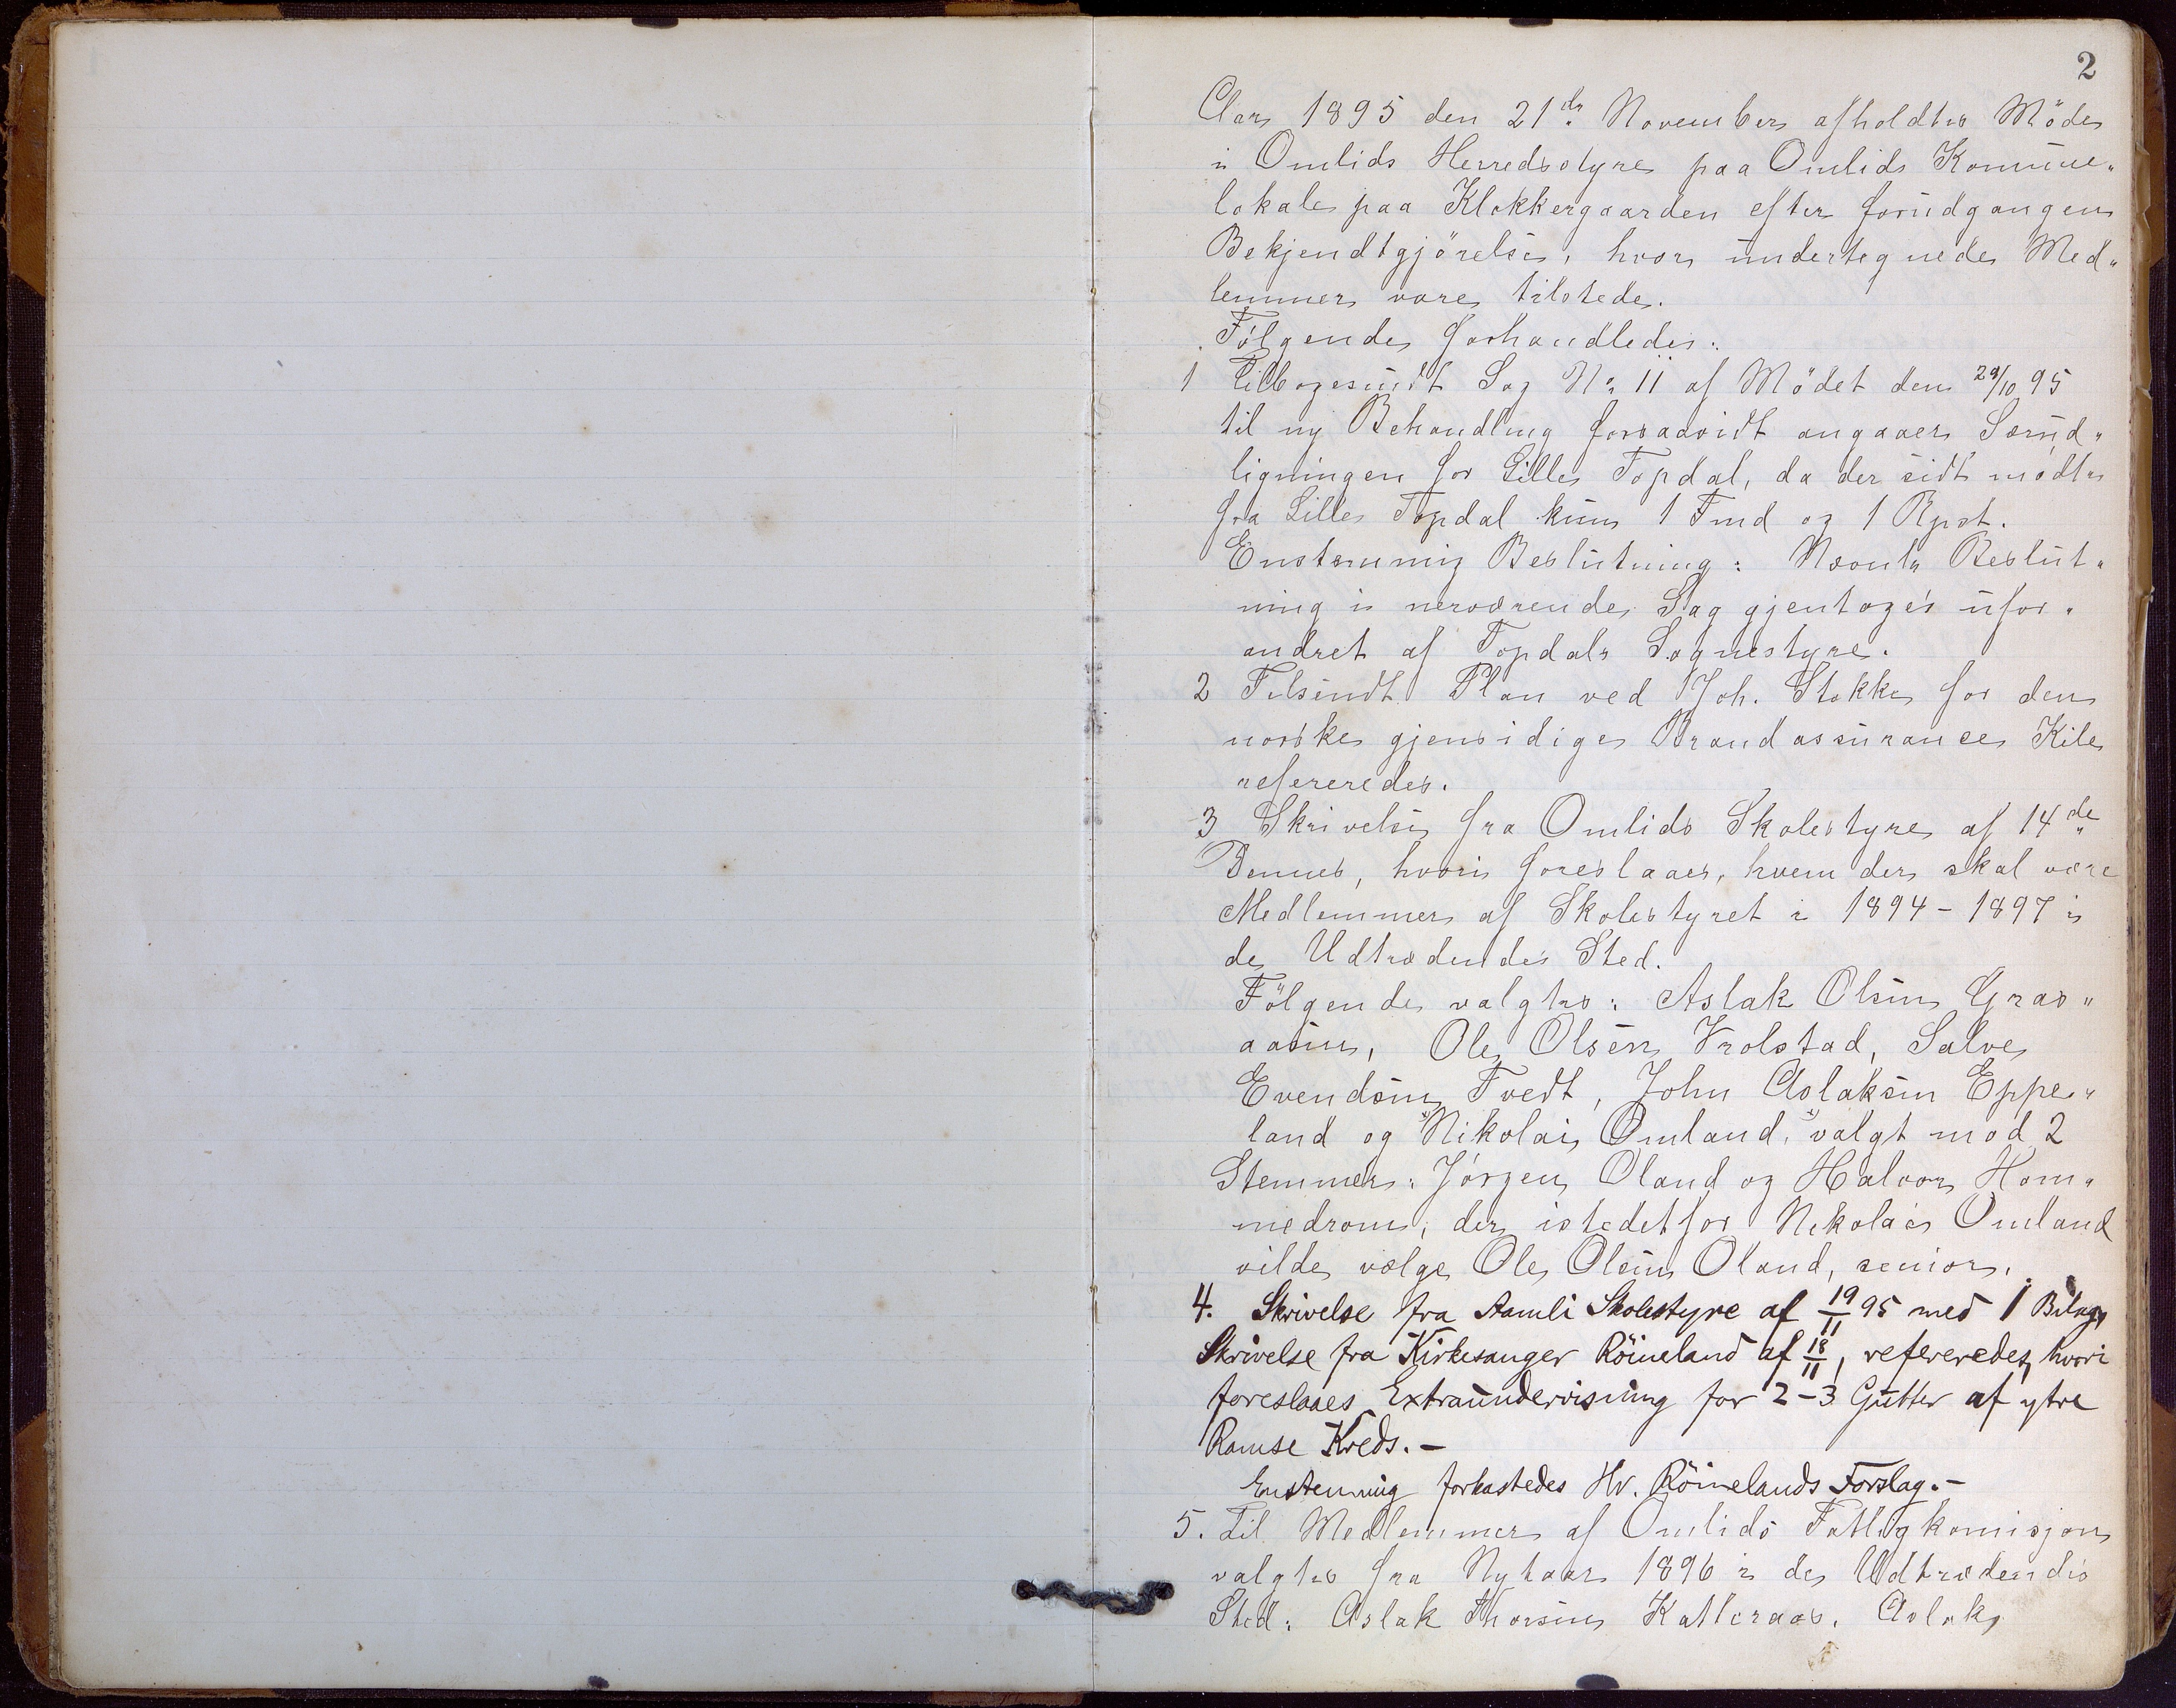 2
Aar 1895 den 21de November afholdtes Möde
i Omlids Herredsstyre paa Omlids Kommune-
lokale paa Klokkergaarden efter forudgangen
Bekjendtgjörelse, hvor undertegnede Med-
lemmer vare tilstede.
Fölgende forhandledes:
1 Tilbagesendt Sag No 11 af Mödet den 29/10 95
til ny Behandling forsaavidt angaaer Særud-
ligningen for Lille Topdal, da der sidst mödte
fra Lille Topdal kun 1 Fmd og 1 Rpst.
Enstemmig Beslutning: Nævnte Beslut-
ning i nærværende Sag gjentoges ufor-
andret af Topdals Sognestyre.
2 Tilsendt Plan ved Joh. Stokke for den
norske gjensidige Brandassurance Kile
refereredes.
3 Skrivelse fra Omlids Skolestyre af 14de
Dennes, hvori foreslaaes, hvem der skal være
Medlemmer af Skolestyret i 1894-1897 i
de Udtrædendes Sted.
Fölgende valgtes: Aslak Olsen Gras-
aasen, Ole Olsen Vrolstad, Salve
Evendsen Tvedt, John Aslaksen Eppe-
land og "Nikolai Omland," valgt mod 2
Stemmer: Jörgen Oland og Halvor Hom-
medrom, der istedetfor Nikolai Omland
vilde vælge Ole Olsen Oland, senior.
4. Skrivelse fra Aamli Skolestyre af 19/11 95 med 1 Bilag,
Skrivelse fra Kirkesanger Röineland af 18/11, refereredes, hvori
foreslaaes Extraundervisning for 2-3 Gutter af ytre
Ramse Kreds.-
Enstemmig forkastedes Hr. Röinelands Forslag.-
5. Til Medlemmer af Omlids Fattigkomisjon
valgtes fra Nytaar 1896 i de Udtrædendes
Sted: Aslak Thorsen Katteraas, Aslak